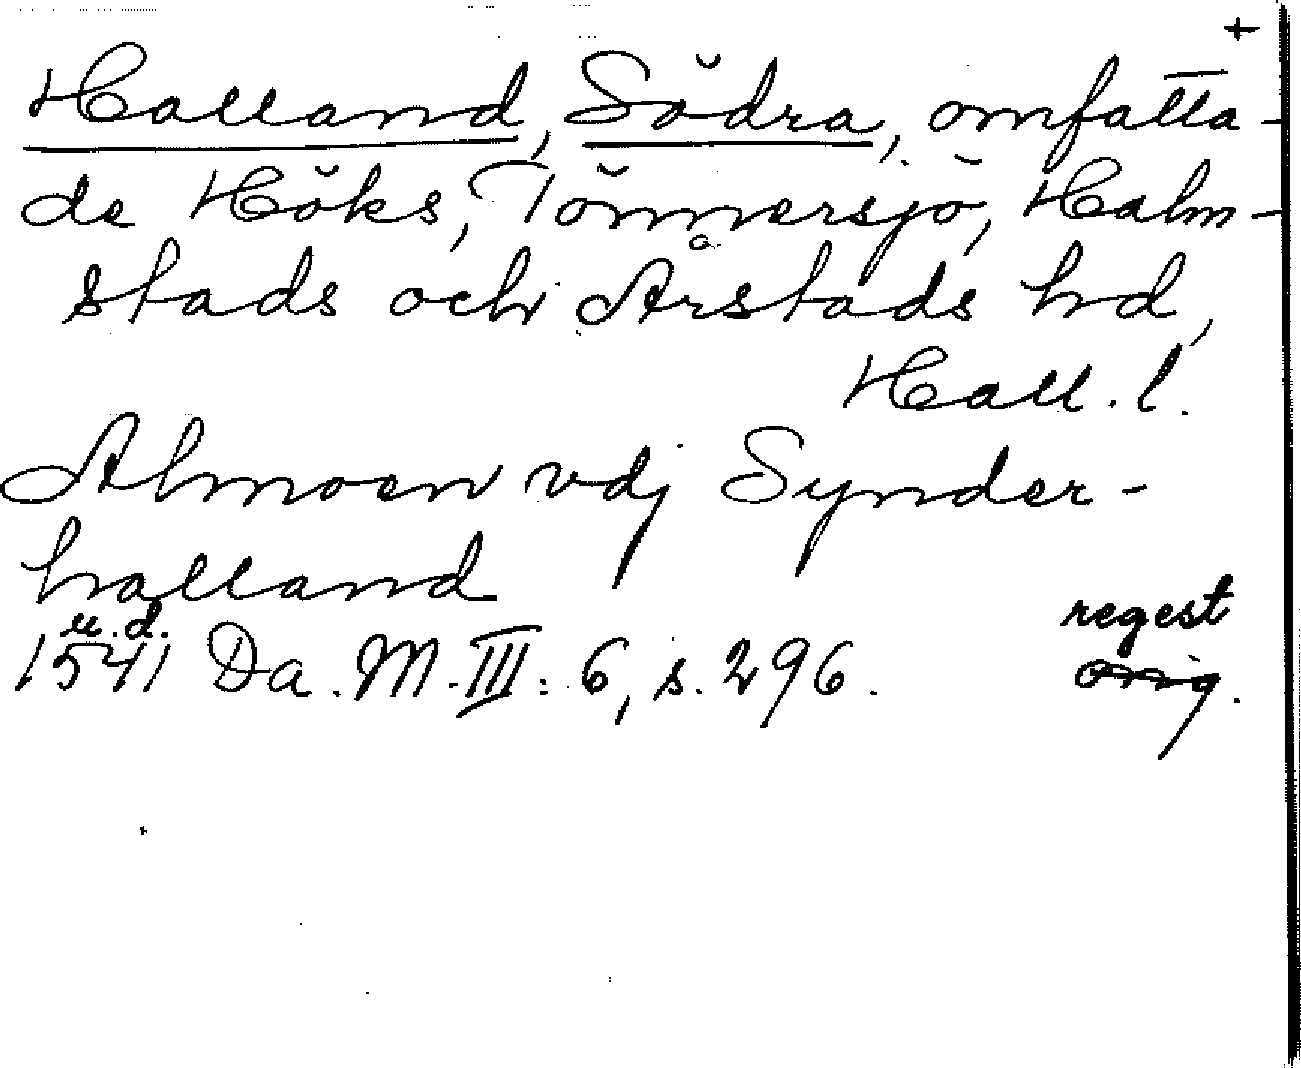 +
Halland, Södra, omfatta-
de Höks, Tönnersjö, Halm-
stads och Årstads hd,
Hall. l.
Almoen vdj Synder-
halland
u. d.
1541 Da. M. III: 6, s. 296.
regest
orig.